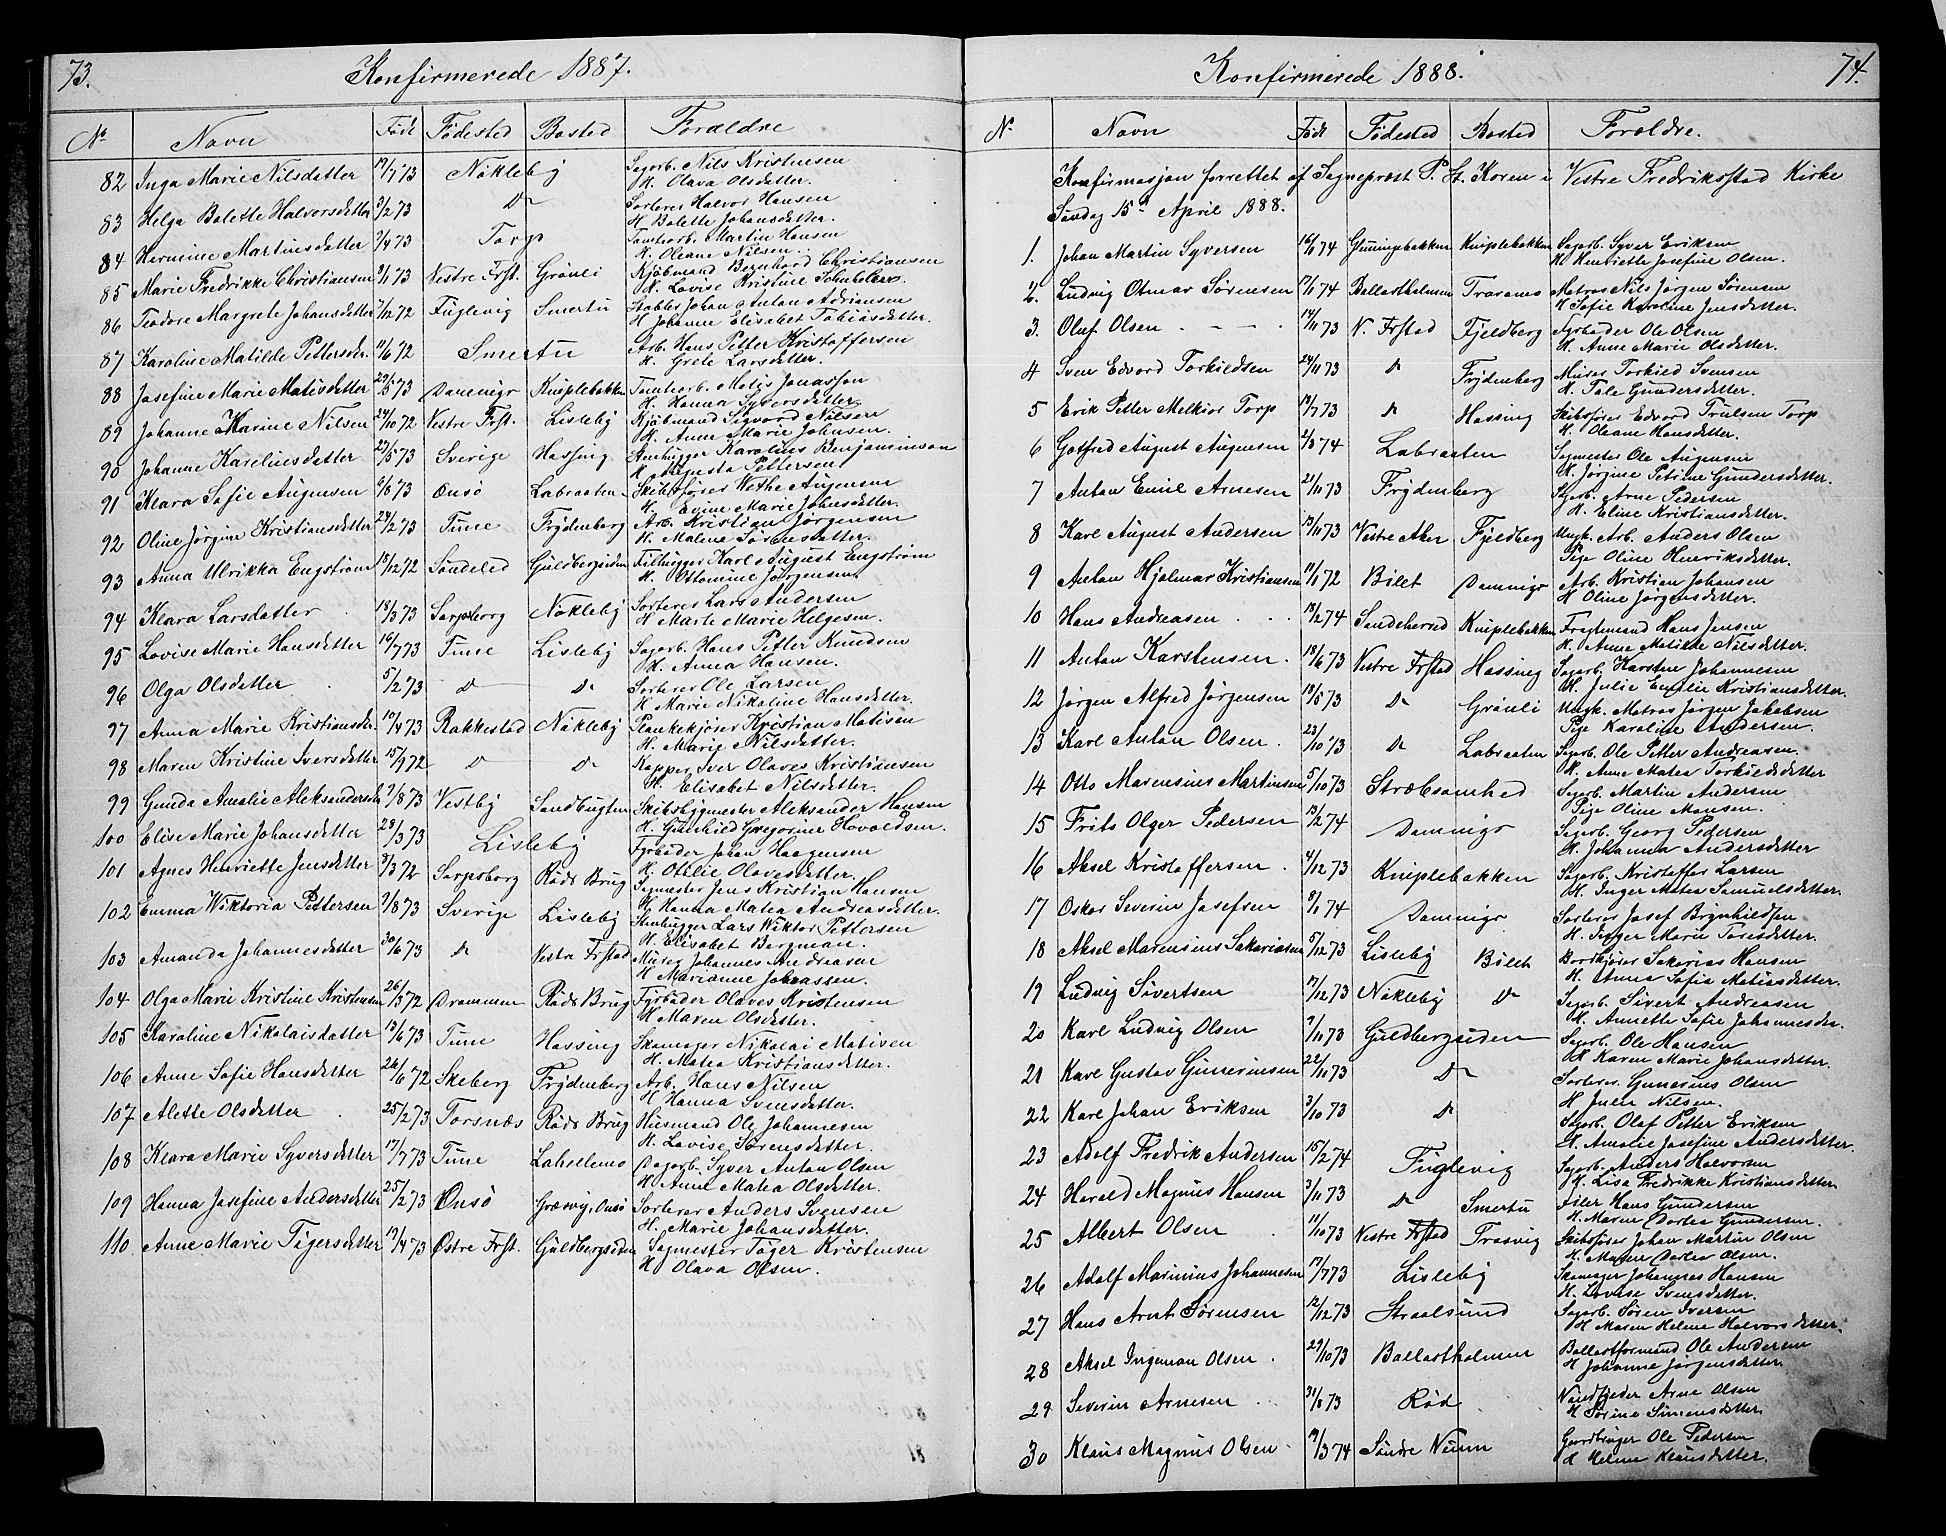 73. Konfirmerede 1887.
No Navn Født Fødested Bosted Forældre
82 Inga Marie Nilsdatter 19/7 73 Nökleby Sagarb. Nils Kristensen
H. Olava Olsdatter.
83 Helga Bolette Halvorsdatter 3/2 73 Do Sorterer Halvor Hansen
H. Bolette Johansdatter.
84 Hermine Martinsdatter 7/4 73 Torp Tomtearb. Martin Hansen
H. Oleane Nilsen.
85 Marie Fredrikke Christiansen 9/1 73 Vestre Frst. Grönli Kjöbmand Bernhard Christiansen
H. Lovise Kristine
86 Teodore Margrete Johansdatter 7/12 72 Fuglevig Smertu Stabber Johan Anton Adriansen
H. Johanne Elisabet Tobiasdatter.
87 Karoline Matilde Pettersdr. 11/6 72 Smertu Arb. Hans Petter Kristoffersen
H. Grete Larsdatter.
88 Josefine Marie Matisdatter 73 Damnigs Kniplebakken Tomtearb. Matis Jonassen
H. Hanna Syversdatter.
89 Johanne Marine Nilsen 24/10 72 Vestre Frst. Lisleby Kjöbmand Sigvard Nilsen
H. Anne Marie Johnsen.
90 Johanne Karelinesdatter 27/5 73 Sverige Hassing Stenhugger Karolius Benjaminson
H. Augusta Pettersen
91 Klara Sofie Augensen 6/8 73 Onsö Labraaten Skibsförer Wethe Augensen
H. Evine Marie Johnsdatter.
92 Oline Jørgine Kristiansdatter 24/2 73 Tune Frydenberg Arb. Kristian Jørgensen
H. Malene Sörensdatter.
93 Anna Ulrikka Engström 18/12 72 Söndeled Guldbergsiden Filhugger Karl August Engström
H. Ottomine Jörgensen.
94 Klara Larsdatter 18/3 73 Sarpsborg Nökleby Sorterer Lars Andersen
H. Marte Marie Helgesen.
95 Lovise Marie Hansdatter 16/7 73 Tune Lisleby Sagarb. Hans Petter Knudsen
H. Anna Hansen.
96 Olga Olsdatter 5/2 73 Do Do Sorterer Ole Larsen
H. Marie Nikoline Hansdatter.
97 Anna Marie Kristiansdr. 10/4 73 Rakkestad Nökleby Plankekjører Kristian Matisen
H. Marie Nilsdatter.
98 Maren Kristine Iversdatter 15/9 72 Do Do Kapper Iver Olaves Kristiansen
H. Elisabet Nilsdatter.
99 Gunda Amalie Aleksandersdr 7/8 73 Vestby Sandbugten Skibsbygmester Aleksander Hansen
H. Gunhild Gregorine Hovaldsen.
100 Elise Marie Johansdatter 28/3 73 Lisleby Fyrbøder Johan Haagensen
H. Otilie Olavesdatter.
101 Agnes Henriette Jensdatter 9/3 72 Sarpsborg Röds Brug Sagmester Jens Kristian Hansen
H. Hanna Matea Andreasdatter.
102 Emma Wiktoria Pettersen 7/8 73 Sverige Lisleby Stenhugger Lars Wiktor Pettersen
H. Elisabet Bergman.
103 Amanda Johannesdatter 30/6 73 do Vestre Frstad Murer Johannes Andreasen
H. Marianne Johnassen.
104 Olga Marie Kristine Kristensen 26/3 72 Drammen Röds Brug Fyrbøder Olaves Kristensen
H. Maren Olsdatter.
105 Karoline Nikolaisdatter 12/6 73 Tune Hassing Skomager Nikolai Mativen
H. Matea Kristiansdatter.
106 Anne Sofie Hansdatter 26/6 72 Skeberg Frydenberg Arb. Hans Nilsen
H. Hanna Svensdatter.
107 Alette Olsdatter 25/2 73 Torsnæs Röds Brug Husmand Ole Johannesen
H. Lovise Sörensdatter.
108 Klara Marie Syversdatter 17/7 73 Tune Lahellemo Dagarb. Syver Anton Olsen
H. Anne Matea Olsdatter.
109 Hanna Josefine Andersdatter 25/2 73 Onsö Græsvig, Onsö Sorterer Anders Svensen
H. Marie Johansdatter.
110 Anne Marie Tigersdatter 19/4 73 Østre Frst. Guldbergsiden Sagmester Tiger Kristensen
H. Olava Olsen.
Konfirmerede 1888. 74.
No Navn Født Födested Bosted Forældre.
Konfirmasjon forrettet af Sogneprost P. St. Koren i Vestre Fredriksstad Kirke
Søndag 15de April 1888.
1. Johan Martin Syversen 16/1 74 Glemmingebakken Kniplebakken Sagarb. Syver Eriksen
H. Henriette Josefine Olsen.
2. Ludvig Otmar Sörensen 17/1 74 Ballastholmen Traranes Matros Nils Jørgen Sörensen
H. Sofie Karoline Jensdatter.
3. Oluf Olsen 14/11 73 V. Frstad Fjeldberg Fyrbøder Ole Olsen
H. Anne Marie Olsdatter.
4 Sven Edvard Torkildsen 24/11 73 do Frydenberg Murer Torkild Svensen
H. Tale Gundersdatter.
5 Erik Petter Melkior Torp 19/7 73 do Hassing Skibsförer Edvard Trulsen Torp
H. Oleane Hansdatter.
6 Gotfred August Augensen 2/3 74 Labraaten Sagmester Ole Augensen
H. Jørgine Petrine Gundersdatter.
7 Anton Emil Arnesen 21/11 73 Frydenberg Sagarb. Arne Pedersen
H. Eline Kristiansdatter.
8 Karl August Andersen 13/11 73 Vestre Aker Fjeldberg Ungk. Arb. Anders Olsen
Pige Oline Henriksdatter.
9 Anton Hjalmar Kristiansen 11/1 72 Bilet Damnigs Arb. Kristian Johansen
H. Oline Jørgensdatter.
10 Hans Andreasen 18/2 74 Sandeherred Kniplebakken Fragtmand Hans Jensen
H. Anne Matilde Nilsdatter.
11 Anton Karstensen. 18/6 73 Vestre Frstad Hassing Sagarb. Karsten Johannesen
H. Julie Emilie Kristiansdatter.
12 Jørgen Alfred Jørgensen 18/5 73 Do Grönli Ungk. Matros Jørgen Jakobsen
Pige Karoline Andersen.
13 Karl Anton Olsen 23/10 73 do Labraaten Sagarb. Ole Petter Andreasen
H. Anne Matea Torkildsdatter
14 Otto Marensius Martinsen 5/10 73 Stræbsomhed Sagarb. Martin Andersen
Pige Oline Monsen.
15 Frits Olger Pedersen 13/2 74 Damnigs Sagarb. Georg Pedersen
H. Johanna Andersdatter
16 Aksel Kristoffersen 4/12 73 Kniplebakken Sagarb. Kristoffer Larsen
H. Inger Matea Samuelsdatter.
17 Oskar Severin Josefsen 8/1 74 Damnigs Sorterer Josef Brynhildsen
H. Inger Marie Toresdatter.
18 Aksel Marensius Sakariasen 5/12 73 Lisleby Bilet Bordkjører Sakarias Hansen
H. Anna Sofia Matiasdatter.
19 Ludvig Sivertsen 17/12 73 Nökleby Do Sagarb. Sivert Andreasen
H. Annette Sofie Johannesdr.
20 Karl Ludvig Olsen 7/11 73 Guldbergsiden Sagarb. Ole Hansen
H. Karen Marie Johansdatter.
21 Karl Gustav Gunerinsen 22/11 73 Do Sorterer Gunerius Olsen
H. Julie Nilsen.
22 Karl Johan Eriksen 3/10 73 do Sagarb. Olaf Petter Eriksen
H. Amalie Josefine Andersdatter.
23 Adolf Fredrik Andersen 15/2 74 Fuglevig Sagarb. Anders Halvorsen
H. Lisa Fredrikke Kristiansdatter
24 Harald Magnus Hansen 3/11 73 do Smertu Filer Hans Gundersen
H. Maren Dortea Gundersen.
25 Albert Olsen 11/10 73 Vestre Frstad Trosvig Skibsförer Johan Martin Olsen
H. Maren Dortea Olsen.
26 Adolf Marinius Johannesen 17/7 73 Lisleby Skomager Johannes Hansen
H. Lovise Svensdatter.
27 Hans Arnt Sörensen 12/12 73 Straalsund Sagarb. Sören Iversen
H. Maren Helene Halvorsdatter.
28 Aksel Ingeman Olsen 29/10 73 Ballastholmen Ballastformand Ole Andersen
H Johanne Jørgensdatter.
29 Severin Arnesen 31/8 73 Röd Arne Olsen
H Sörine Simensdatter.
30 Klaus Magnus Olsen 19/3 74 Söndre Neum Gaardbruger Ole Pedersen
H Helene Klausdatter.